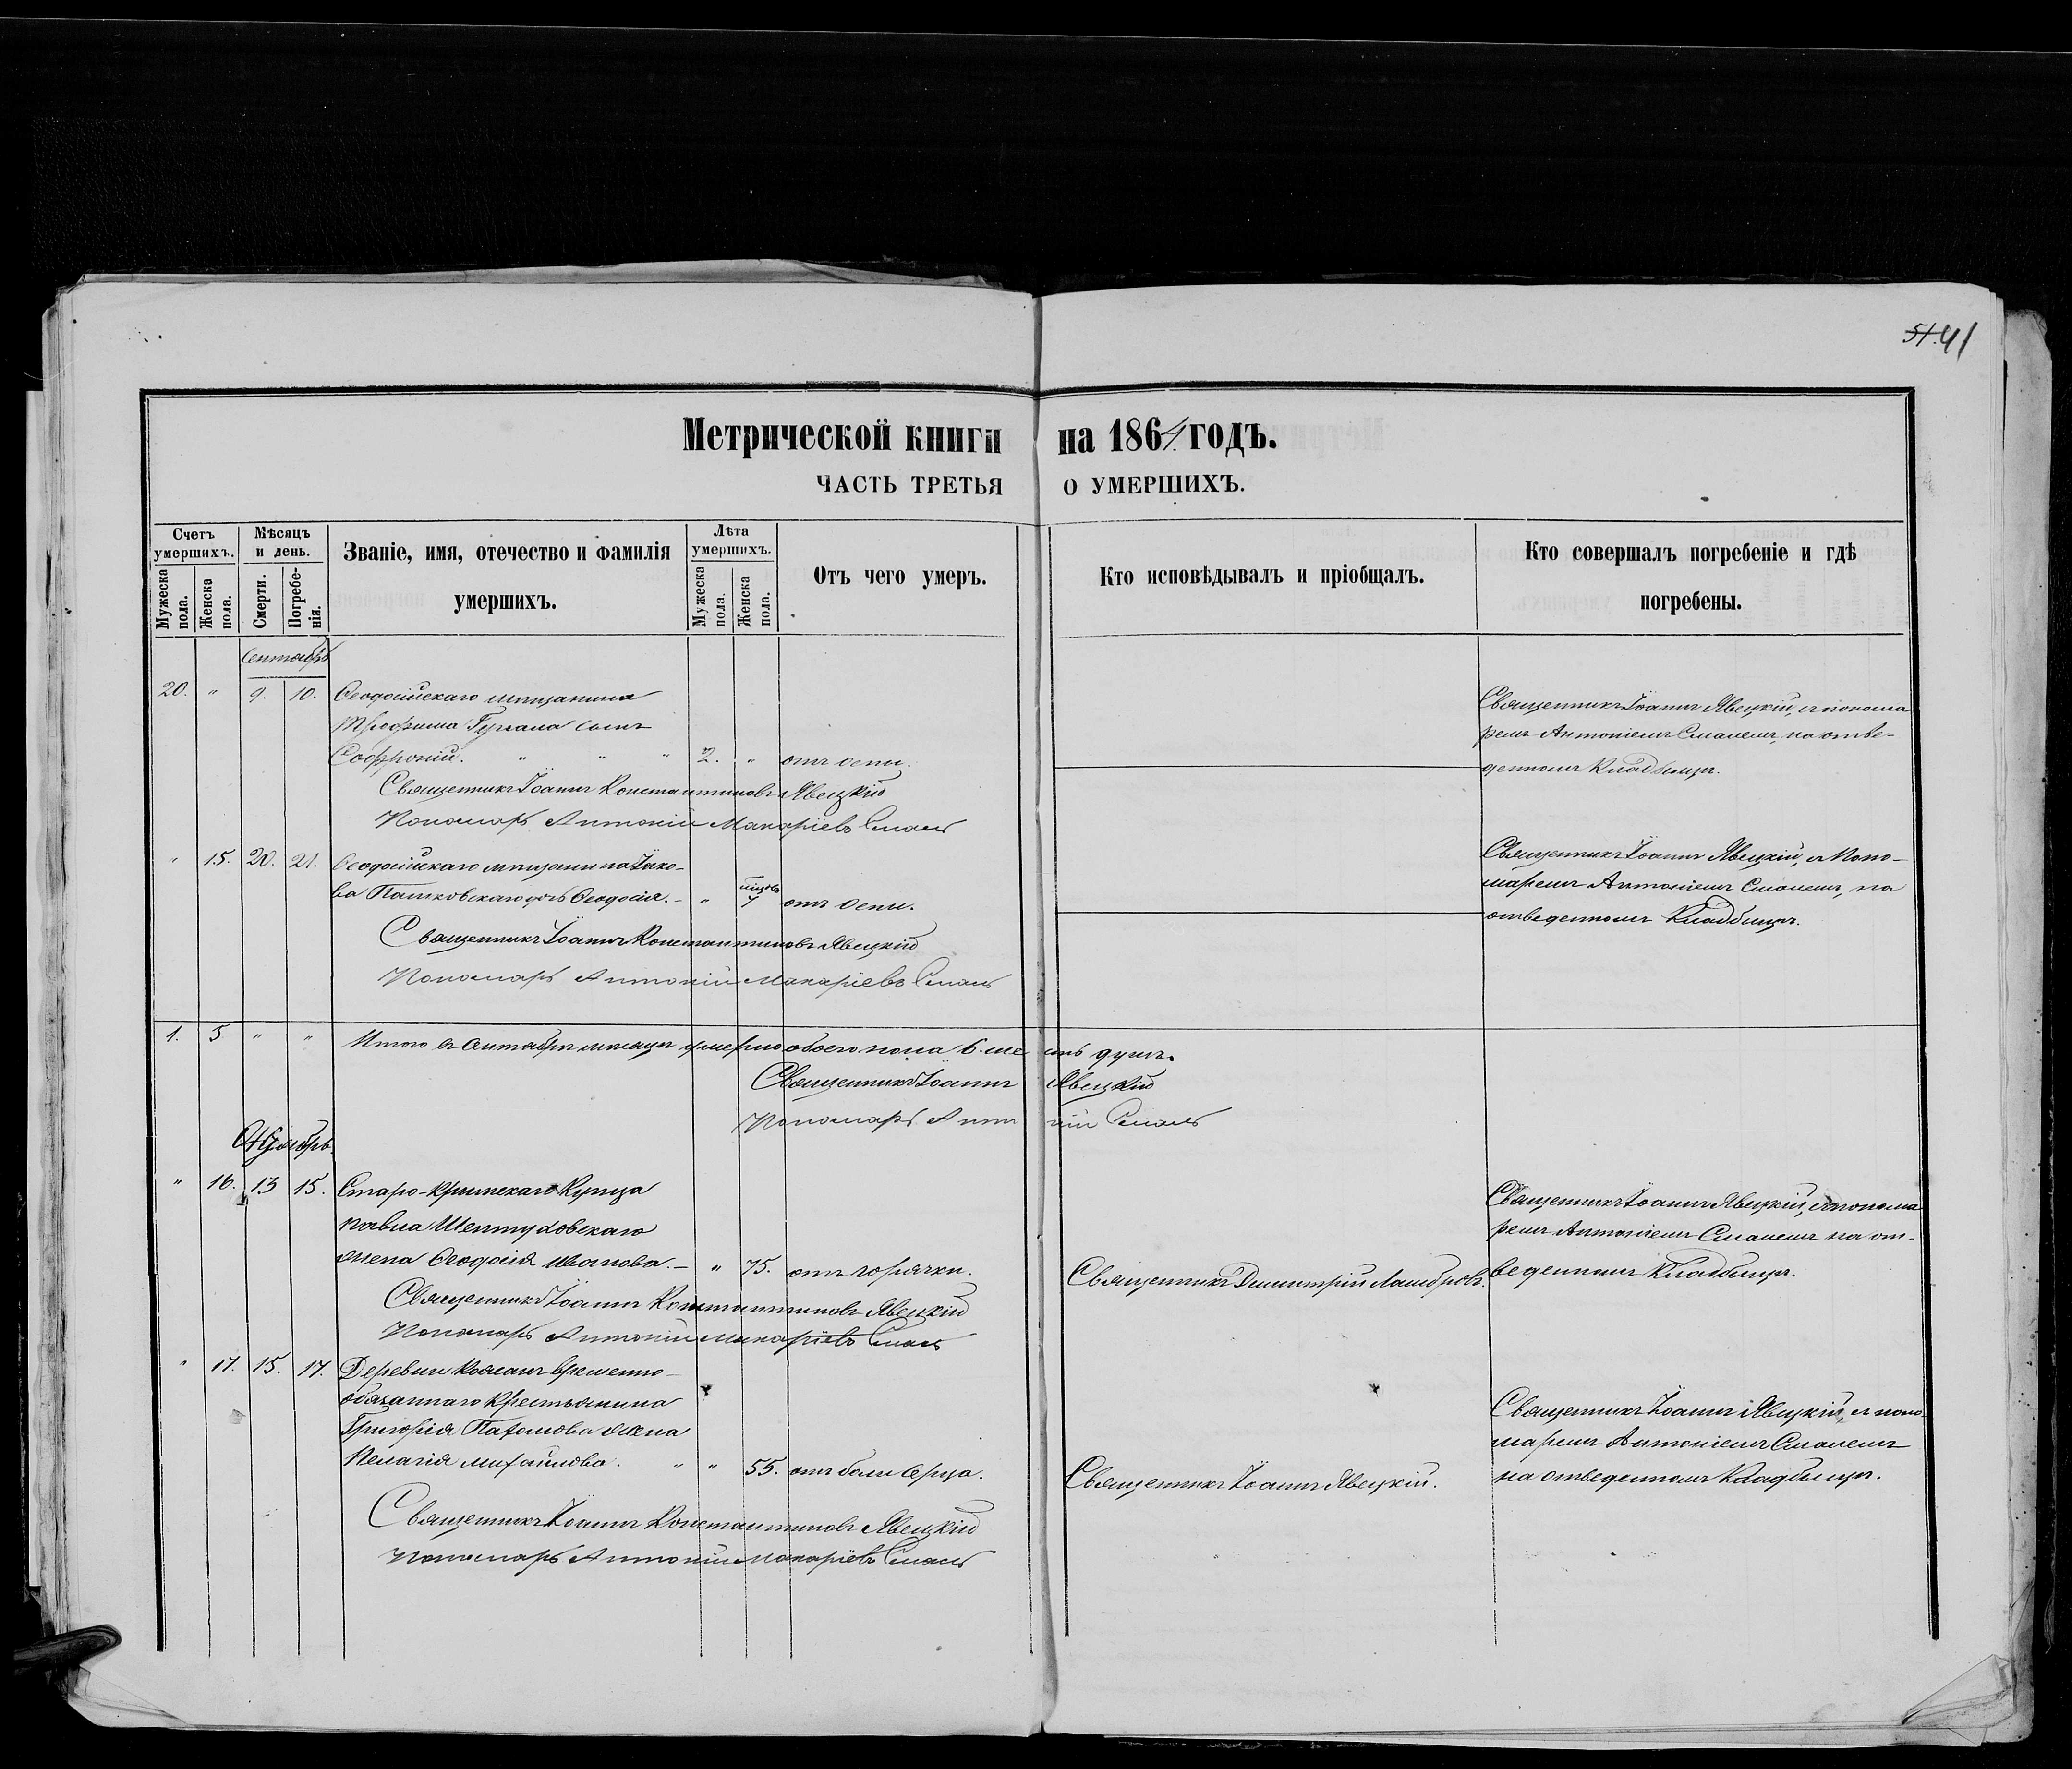 51. 41
Метрической книги на 1864 годъ.
ЧАСТЬ ТРЕТЬЯ О УМЕРШИХЪ.
Счетъ умершихъ.
Мужеска пола.
Женска пола.
Мѣсяцъ и день.
Смерти.
Погребе-нія.
Званіе, имя, отечество и фамилія
умершихъ.
Лѣта умершихъ.
Мужеска пола.
Женска пола.
Отъ чего умеръ.
Кто исповѣдывалъ и пріобщалъ.
Кто совершалъ погребеніе и гдѣ
погребены.
Сентябрь
20. " 9. 10. Ѳеодосійскаго мѣщанина
Трофима сынъ
Софроній. " " " 2. " отъ оспы.
Священникъ Іоаннъ Константиновъ Явецкій
Пономарь Антоній Макаріевъ Смаль
Священникъ Іоаннъ Явецкій, съ понома
ремъ Антоніемъ Смалемъ, на отве-
денномъ Кладбищѣ.
" 15. 20. 21. Ѳеодосійскаго мѣщанина Іако-
ва Пашковскаго дочь Ѳеодосія. - " мцъ 7 отъ оспы.
Священникъ Іоаннъ Константиновъ Явецкій
Пономарь Антоній Макаріевъ Смаль
Священникъ Іоаннъ Явецкій, съ Поно-
маремъ Антоніемъ Смалемъ, на
отведенномъ Кладбищѣ.
1. 5 " " Итого въ Сентябрѣ мѣсяцѣ умерло обоего пола 6. ше сть душъ.
Священникъ Іоаннъ Явецкій
Пономарь Анто ній Смаль
Октябрь.
" 16. 13 15. Старо-Крымскаго Купца
Павла Шептуховскаго
жена Ѳеодосія Иванова. - " 75. отъ горячки.
Священникъ Іоаннъ Константиновъ Явецкій
Пономарь Антоній Макаріевъ Смаль
Священникъ Димитрій
Священникъ Іоаннъ Явецкій, съ понома
ремъ Антоніемъ Смалемъ на от-
веденномъ Кладбищѣ.
" 17. 15. 17. Деревни временно-
обязаннаго крестьянина
Григорія Пахомова жена
Пелагія Михайлова. " " 55. отъ боли сердца.
Священникъ Іоаннъ Константиновъ Явецкій
Пономарь Антоній Макаріевъ Смаль
Священникъ Іоаннъ Явецкій.
Священникъ Іоаннъ Явецкій, съ поно-
маремъ Антоніемъ Смалемъ
на отведенномъ Кладбищѣ.